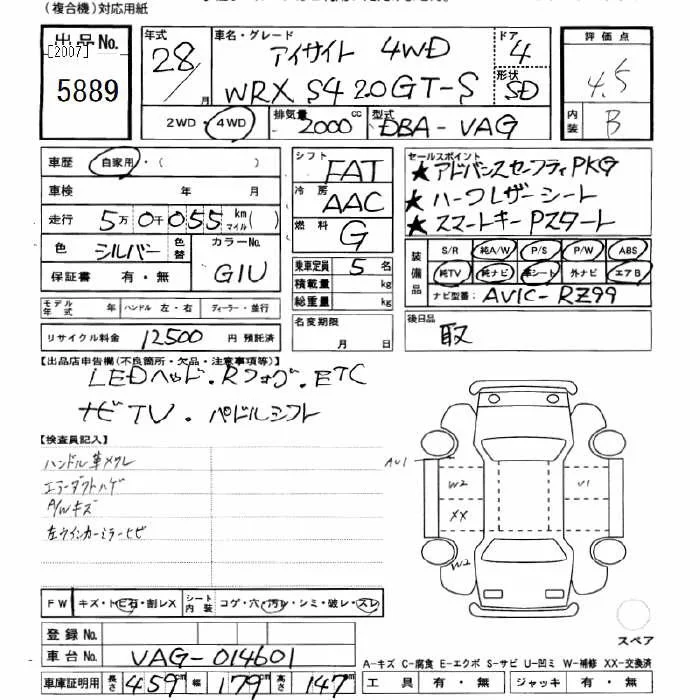 (複合機)対応用紙
出品No.
[2007]
5889
年式 28/月
車名・グレード
アイサイト 4WD
WRX S4 2.0GT-S
ドア 4
形状 SD
評価点
4.5
内装 B
2WD・4WD
排気量 2000cc
型式 DBA-VAG
車歴 自家用・( )
車検 年 月
走行 5万0千055 km マイル( )
色 シルバー 色替
カラーNo. G1U
保証書 有・無
シフト FAT
冷房 AAC
燃料 G
乗車定員 5名
積載量 kg
総重量 kg
セールスポイント
★アドバンスセーフティPKG
★ハーフレザーシート
★スマートキーPスタート
装備品
S/R 純A/W P/S P/W ABS
純TV 純ナビ 革シート 外ナビ エアB
ナビ型番: AVIC-RZ99
モデル年式 年 ハンドル 左・右 ディーラー・並行
リサイクル料金 12500 円 預託済
名変期限 月 日
後日品
取
【出品店申告欄(不良箇所・欠品・注意事項等)】
LEDヘッド・Rフォグ・ETC
ナビTV・パドルシフト
【検査員記入】
ハンドル革メクレ
エアーダクトハゲ
A/Wキズ
左ウインカーミラーヒビ
AU1
W2
U1
XX
W2
FW キズ・トビ石・割レX
シート内装 コゲ・穴・汚レ・シミ・破レ・スレ
スペア
登録No.
車台No. VAG-014601
A-キズ C-腐食 E-エクボ S-サビ U-凹ミ W-補修 XX-交換済
車庫証明用 長さ 459cm 幅 179cm 高さ 147cm
工具 有・無 ジャッキ 有・無